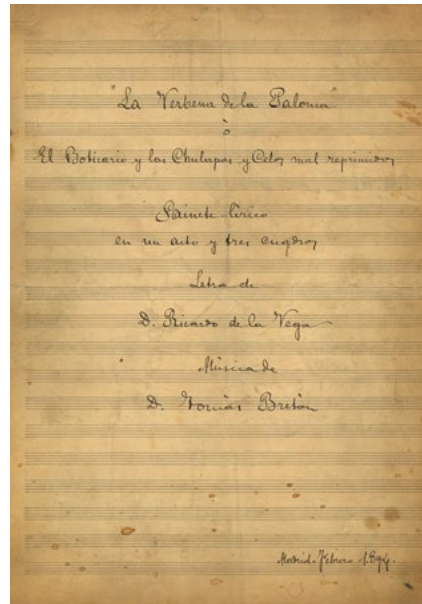 "La Verbena de la Paloma"
ò
El Boticario y las Chulapas y Celos mal reprimidos
Sainete-lírico
en un acto y tres cuadros
Letra de
D. Ricardo de la Vega
Música de
D. Tomás Bretón
Madrid-Febrero 1894.